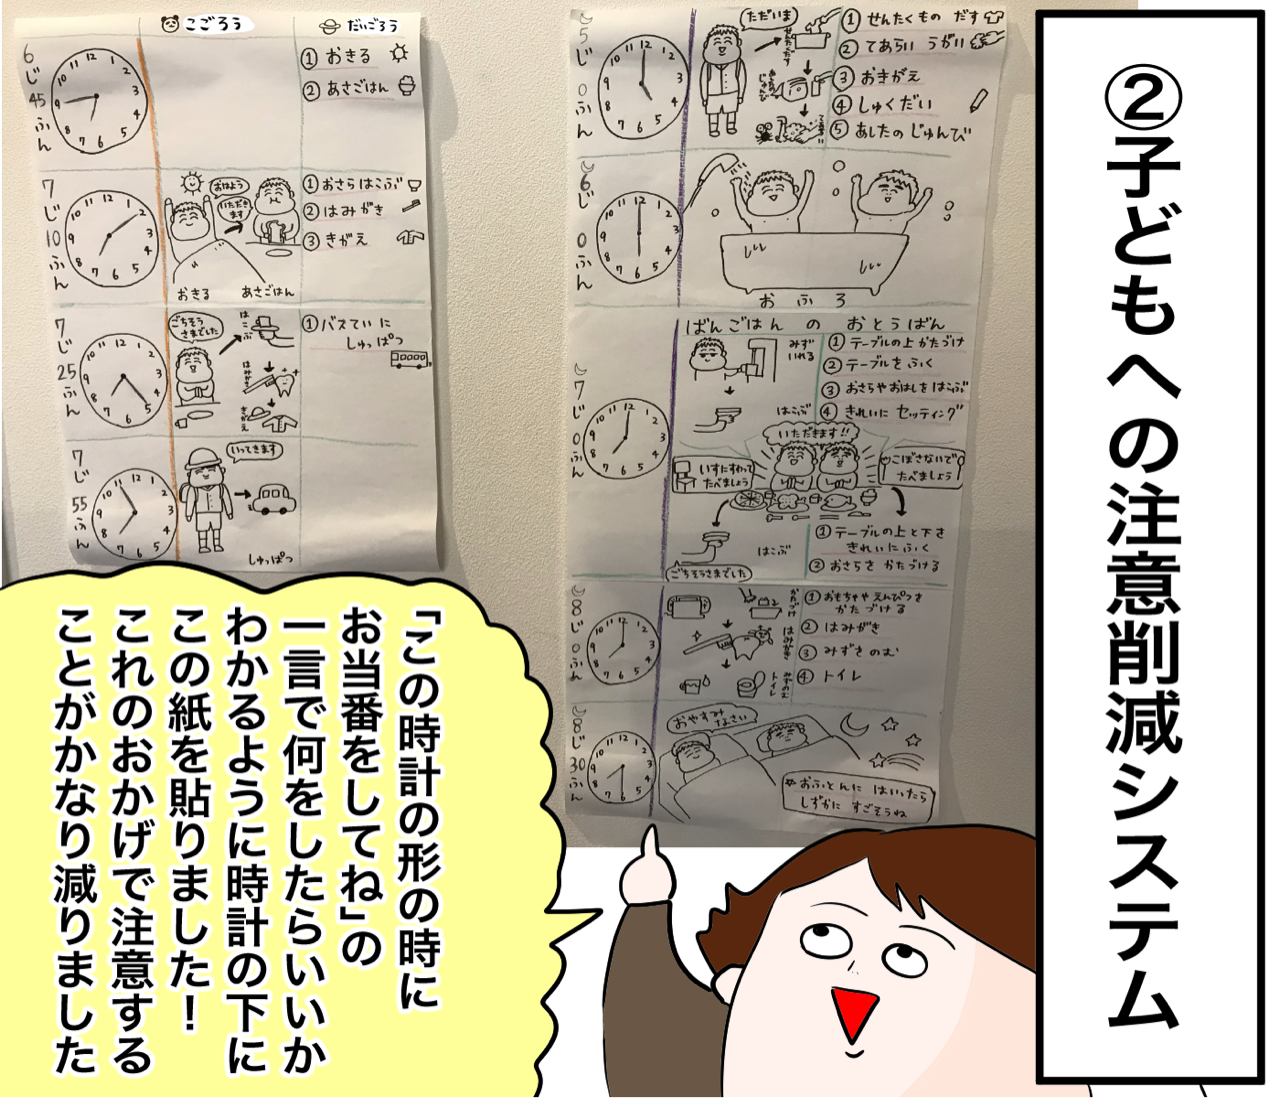 ②子どもへの注意削減システム
こごろう
だいごろう
6じ45ふん
① おきる
② あさごはん
7じ10ふん
おはよう
いただきます
おきる
あさごはん
① おさらはこぶ
② はみがき
③ きがえ
7じ25ふん
ごちそうさまでした
はこぶ
はみがき
きがえ
① バスていに
しゅっぱつ
7じ55ふん
いってきます
しゅっぱつ
5じ0ふん
ただいま
① せんたくもの だす
② てあらい うがい
③ おきがえ
④ しゅくだい
⑤ あしたの じゅんび
6じ0ふん
おふろ
7じ0ふん
ばんごはん の おとうばん
みず
いれる
はこぶ
① テーブルの上 かたづけ
② テーブルを ふく
③ おさらやおはしを はこぶ
④ きれいに セッティング
いただきます!!
いすにすわって
たべましょう
こぼさないで
たべましょう
はこぶ
ごちそうさまでした
① テーブルの上と下を
きれいにふく
② おさらを かたづける
8じ0ふん
かたづけ
はみがき
みずのむ
トイレ
① おもちゃや えんぴつを
かたづける
② はみがき
③ みずをのむ
④ トイレ
8じ30ふん
おやすみ
なさい
※おふとんに はいったら
しずかに すごそうね
「この時計の形の時に
お当番をしてね」の
一言で何をしたらいいか
わかるように時計の下に
この紙を貼りました！
これのおかげで注意する
ことがかなり減りました